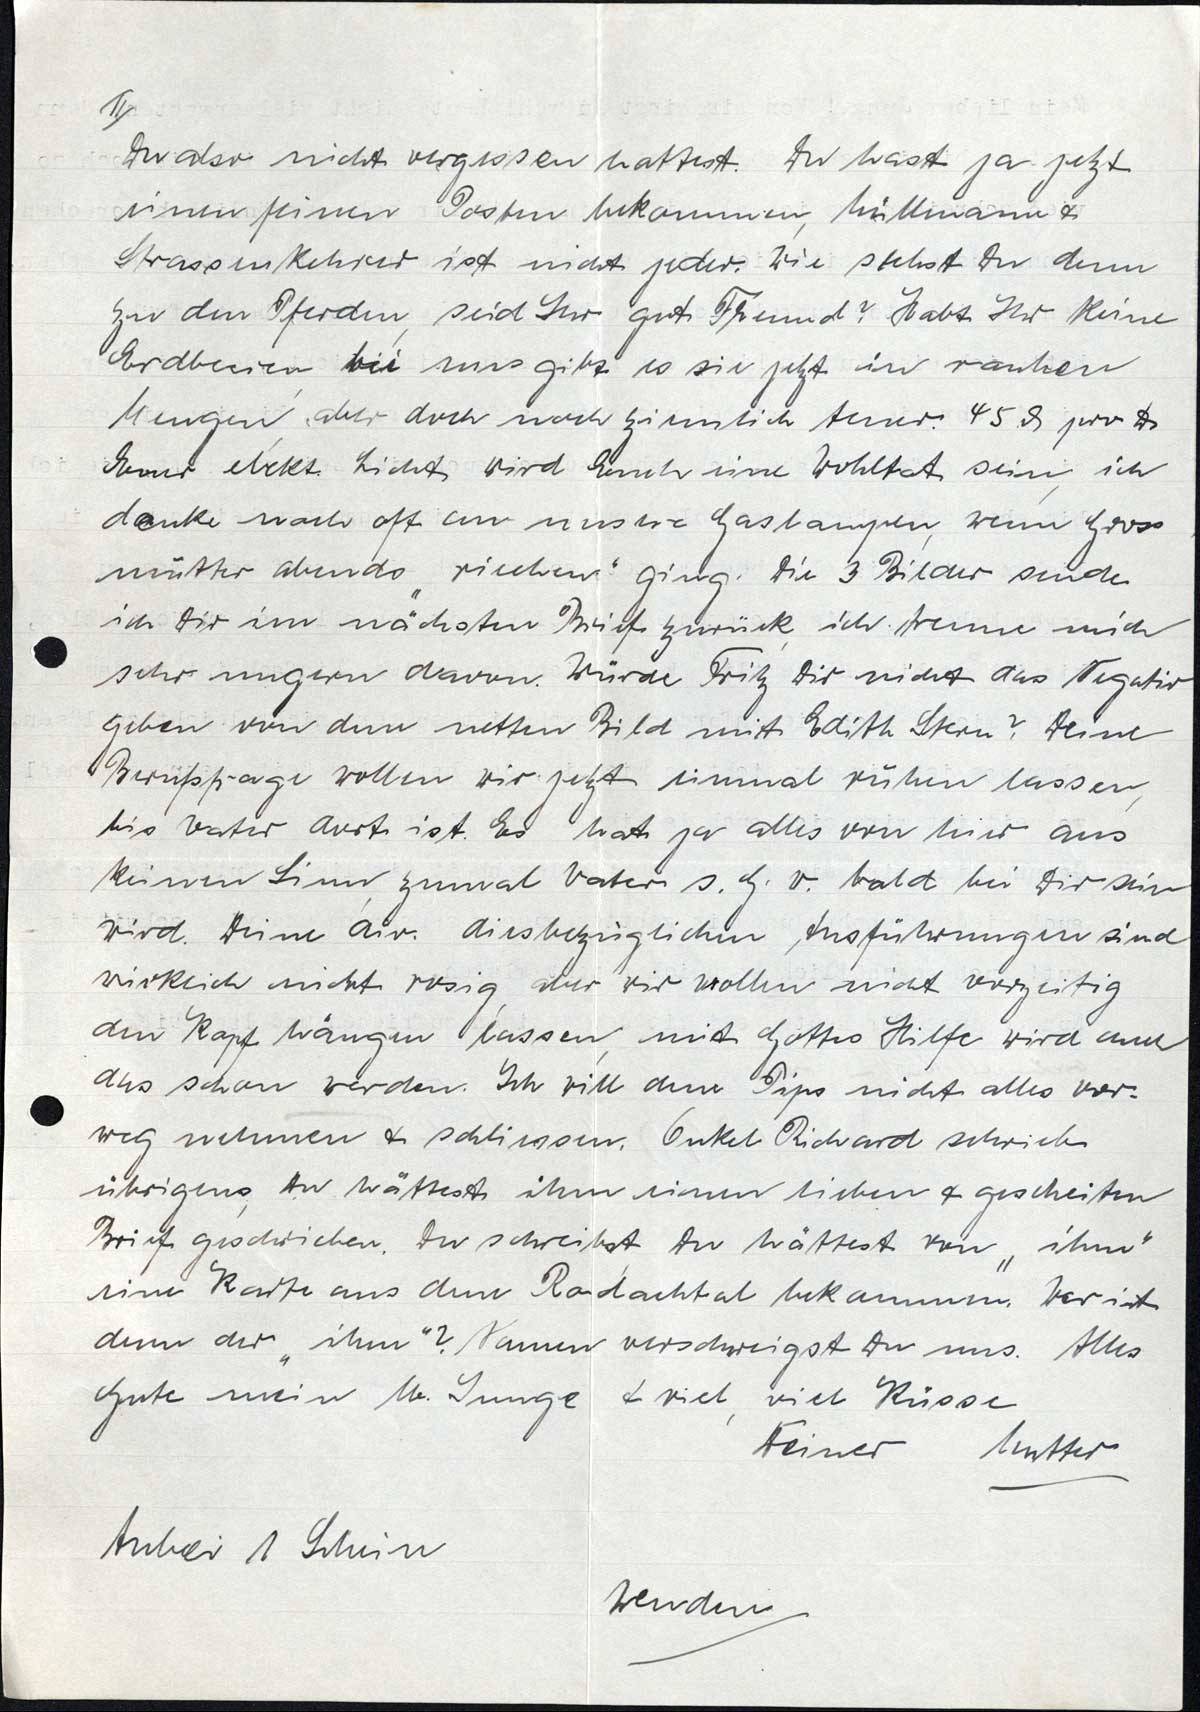 II/
Du also nicht vergessen hattest. Du hast ja jetzt
einen feinen Posten bekommen, Müllmann &
Strassenkehrer ist nicht jeder. Wie stehst Du denn
zu den Pferden, seid Ihr gut Freund? Habt Ihr keine
Erdbeeren, bei uns gibt es sie jetzt in rauhen
Mengen, aber doch noch ziemlich teuer. 45 ₰ pro ℔
Euer elekt. Licht wird Euch eine Wohltat sein, ich
denke noch oft an unsere Gaslampen, wenn Gross
mutter abends „riechen" ging. Die 3 Bilder sende
ich Dir im nächsten Brief zurück, ich trenne mich
sehr ungern davon. Würde Fritz Dir nicht das Negativ
geben von dem netten Bild mit Edith Stern? Deine
Berufsfrage wollen wir jetzt einmal ruhen lassen,
bis Vater dort ist. Es hat ja alles von hier aus
keinen Sinn, zumal Vater s. G. w. bald bei Dir sein
wird. Deine div. diesbezüglichen Ausführungen sind
wirklich nicht rosig, aber wir wollen nicht vorzeitig
den Kopf hängen lassen, mit Gottes Hilfe wird auch
das schon werden. Ich will dem Pips nicht alles vor-
weg nehmen & schliessen. Onkel Richard schrieb
übrigens, Du hättest ihm einen lieben & gescheiten
Brief geschrieben. Du schreibst, Du hättest von „ihm"
eine Karte aus dem Rodachtal bekommen. Wer ist
denn der „ihm"? Namen verschweigst Du uns. Alles
Gute mein lb. Junge & viel, viel Küsse
Deiner Mutter
Anbei 1 Schein
Wenden